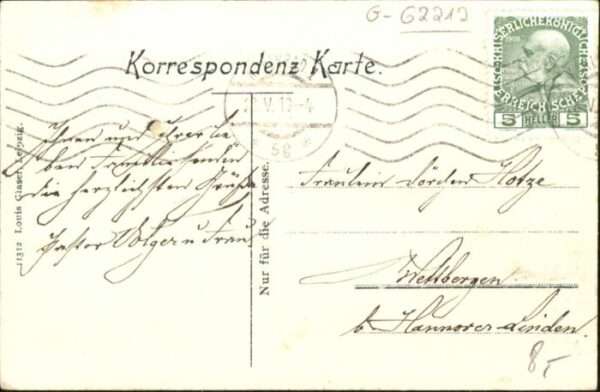 G-G2212
Korrespondenz Karte.
KAISERLICHE KÖNIGLICHE
ÖSTERREICHISCHE
5 HELLER 5
V. 12-4
Ihnen und Ihrer lie
ben
die herzlichsten Grüße
Pastor Volger u Frau
11312 Louis Glaser, Leipzig.
Nur für die Adresse.
Fräulein Dörchen Hotze
Wettbergen
b/ Hannover-Linden.
8,-